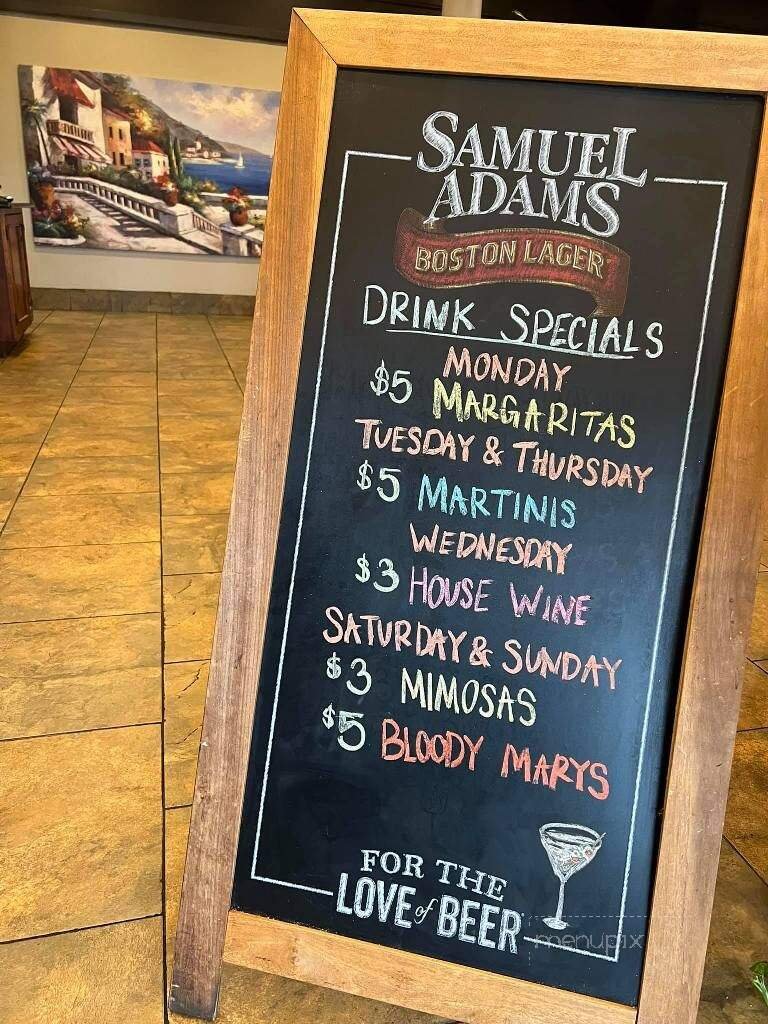 SAMUEL
ADAMS
BOSTON LAGER
DRINK SPECIALS
MONDAY
$5 MARGARITAS
TUESDAY & THURSDAY
$5 MARTINIS
WEDNESDAY
$3 HOUSE WINE
SATURDAY & SUNDAY
$3 MIMOSAS
$5 BLOODY MARYS
FOR THE
LOVE of BEER
menupix